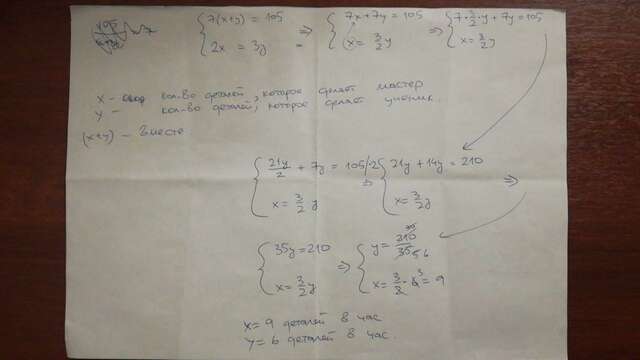 { 7(x+y) = 105 => { 7x+7y = 105 => { 7·3/2·y + 7y = 105
{ 2x = 3y - { x = 3/2 y { x = 3/2 y
x - кол-во деталей, которое сделает мастер
y - кол-во деталей, которое сделает ученик.
(x+y) - Вместе
{ 21y/2 + 7y = 105 |·2 => { 21y + 14y = 210 =>
{ x = 3/2 y { x = 3/2 y
{ 35y = 210 => { y = 210/35 = 6
{ x = 3/2 y { x = 3/2 · 6 = 9
x = 9 деталей в час
y = 6 деталей в час.